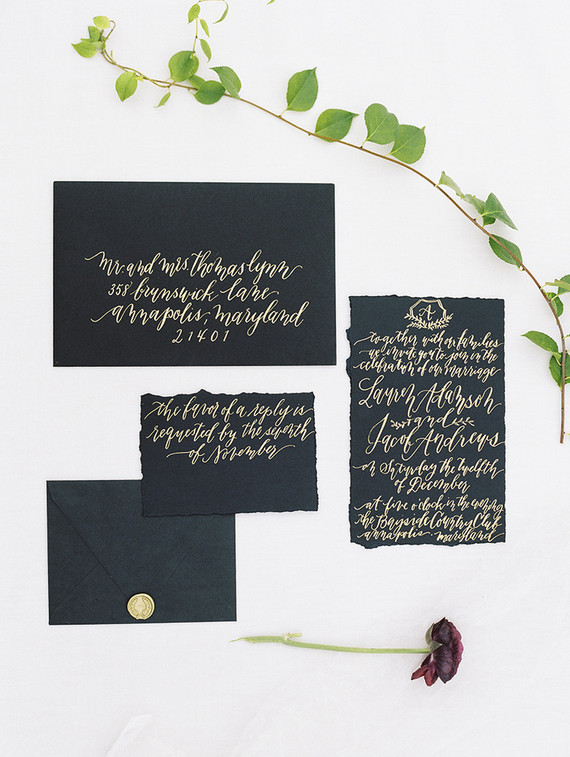 mr. and mrs thomas lynn
358 brunswick lane
annapolis, maryland
21401
the favor of a reply is
requested by the seventh
of November
A
together with our families
we invite you to join in the
celebration of our marriage
Lauren Adamson
and
Jacof Andrews
on Saturday the twelfth
of December
at five o'clock in the evening
the Bayside Country Club
annapolis, maryland